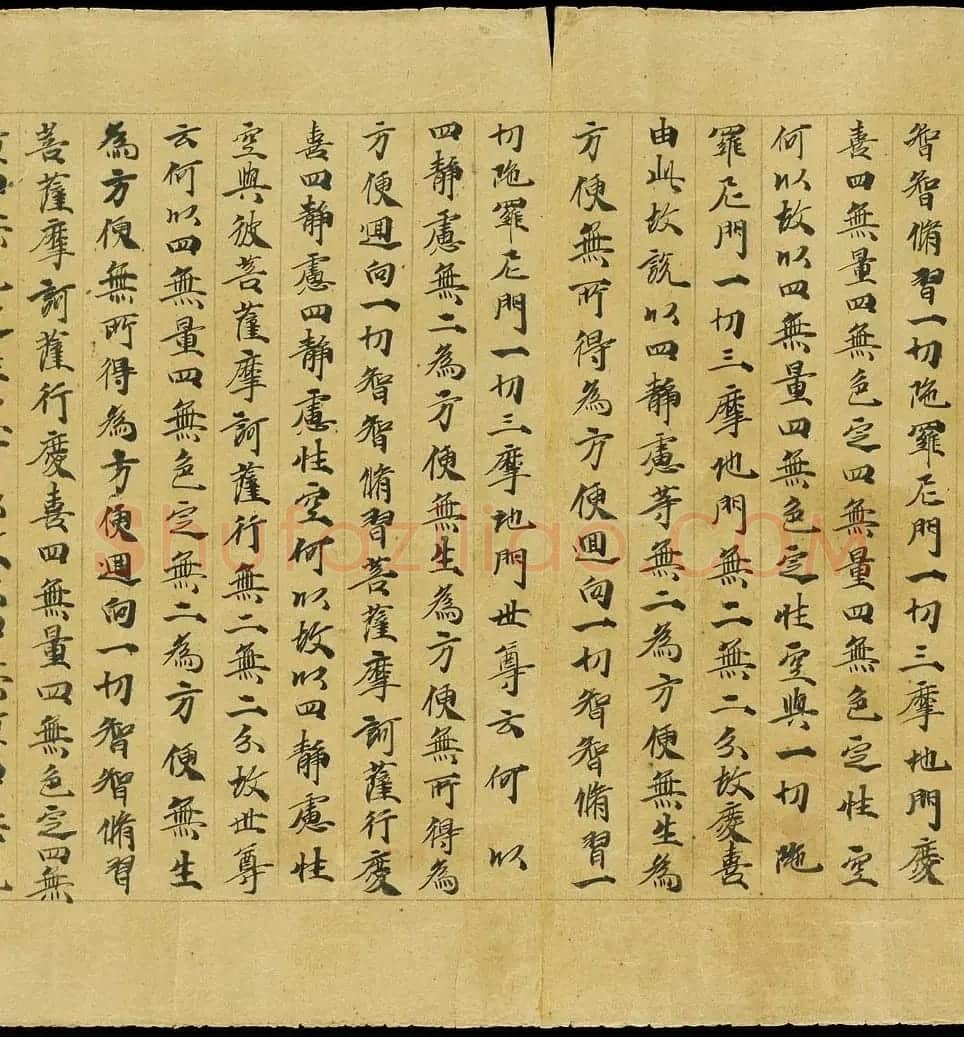 智智脩習一切陁羅尼門一切三摩地門慶
喜四無量四無色定四無量四無色定性空
何以故以四無量四無色定性空與一切陁
羅尼門一切三摩地門無二無二分故慶喜
由此故說以四靜慮等無二為方便無生為
方便無所得為方便迴向一切智智脩習一
切陁羅尼門一切三摩地門世尊云何以
四靜慮無二為方便無生為方便無所得為
方便迴向一切智智脩習菩薩摩訶薩行慶
喜四靜慮四靜慮性空何以故以四靜慮性
空與彼菩薩摩訶薩行無二無二分故世尊
云何以四無量四無色定無二為方便無生
為方便無所得為方便迴向一切智智脩習
菩薩摩訶薩行慶喜四無量四無色定四無
Shufaziliao.COM